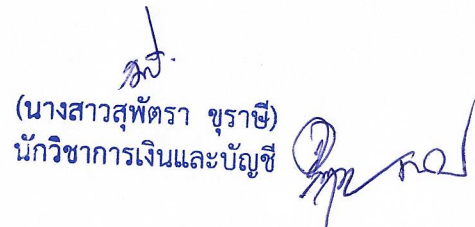 (นางสาวสุพัตรา ขุราษี)
นักวิชาการเงินและบัญชี